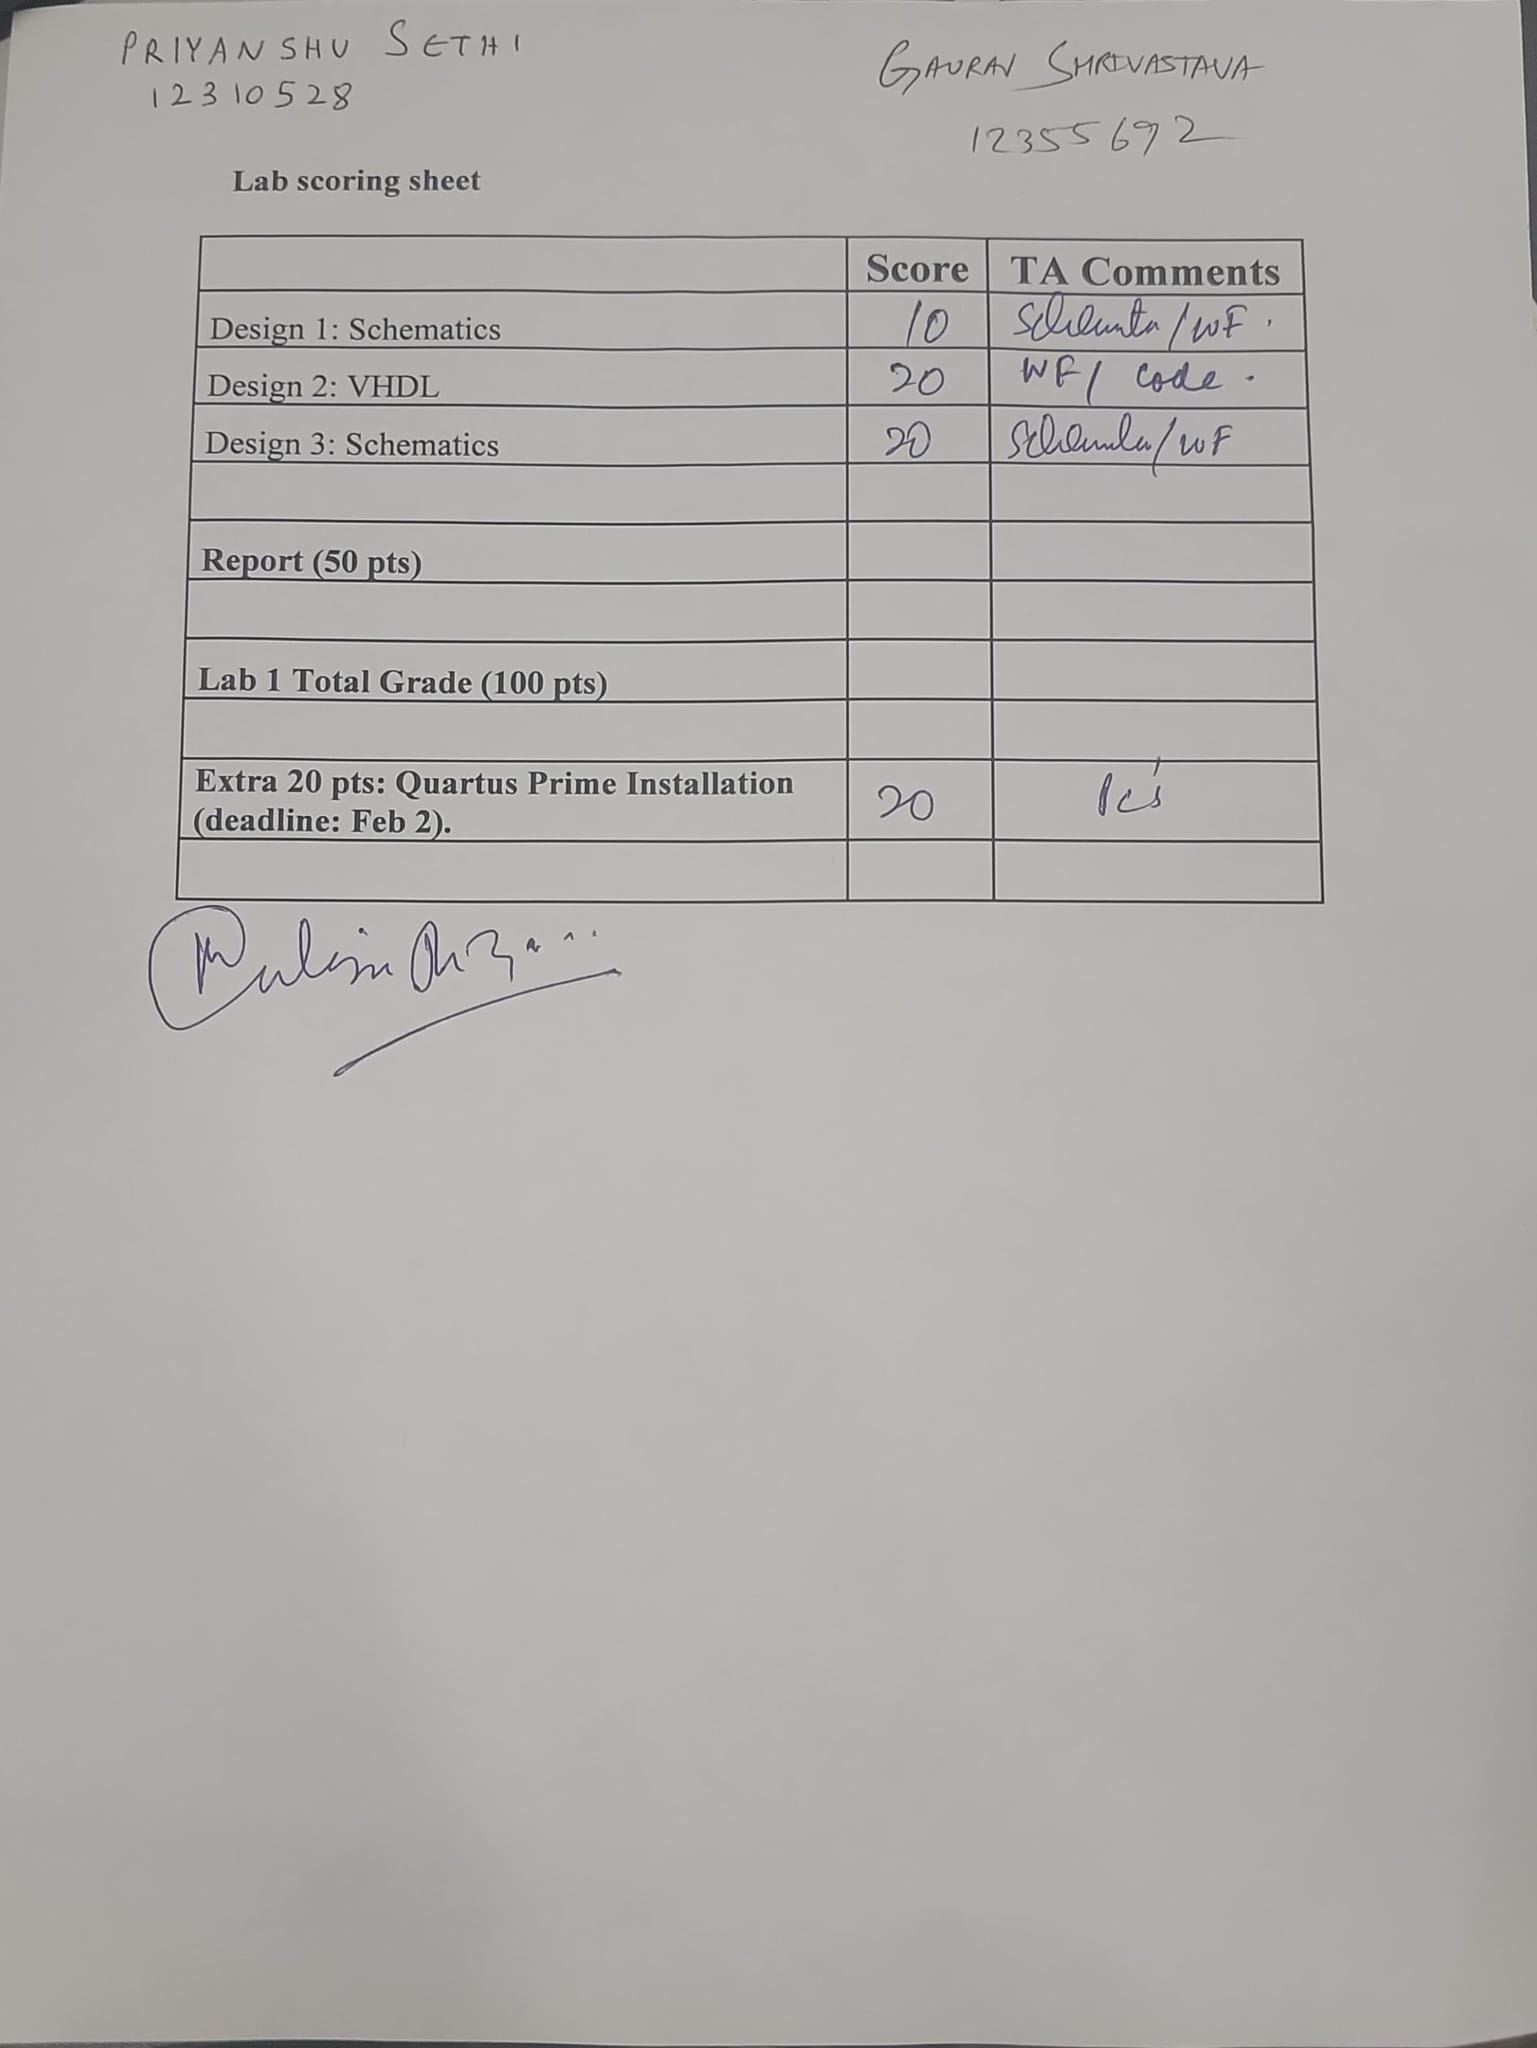 PRIYANSHU SETHI
12310528
GAURAV SHRIVASTAVA
12355692
Lab scoring sheet
Score TA Comments
Design 1: Schematics 10 /WF.
Design 2: VHDL 20 WF/ code.
Design 3: Schematics 20 /WF
Report (50 pts)
Lab 1 Total Grade (100 pts)
Extra 20 pts: Quartus Prime Installation 20
(deadline: Feb 2).